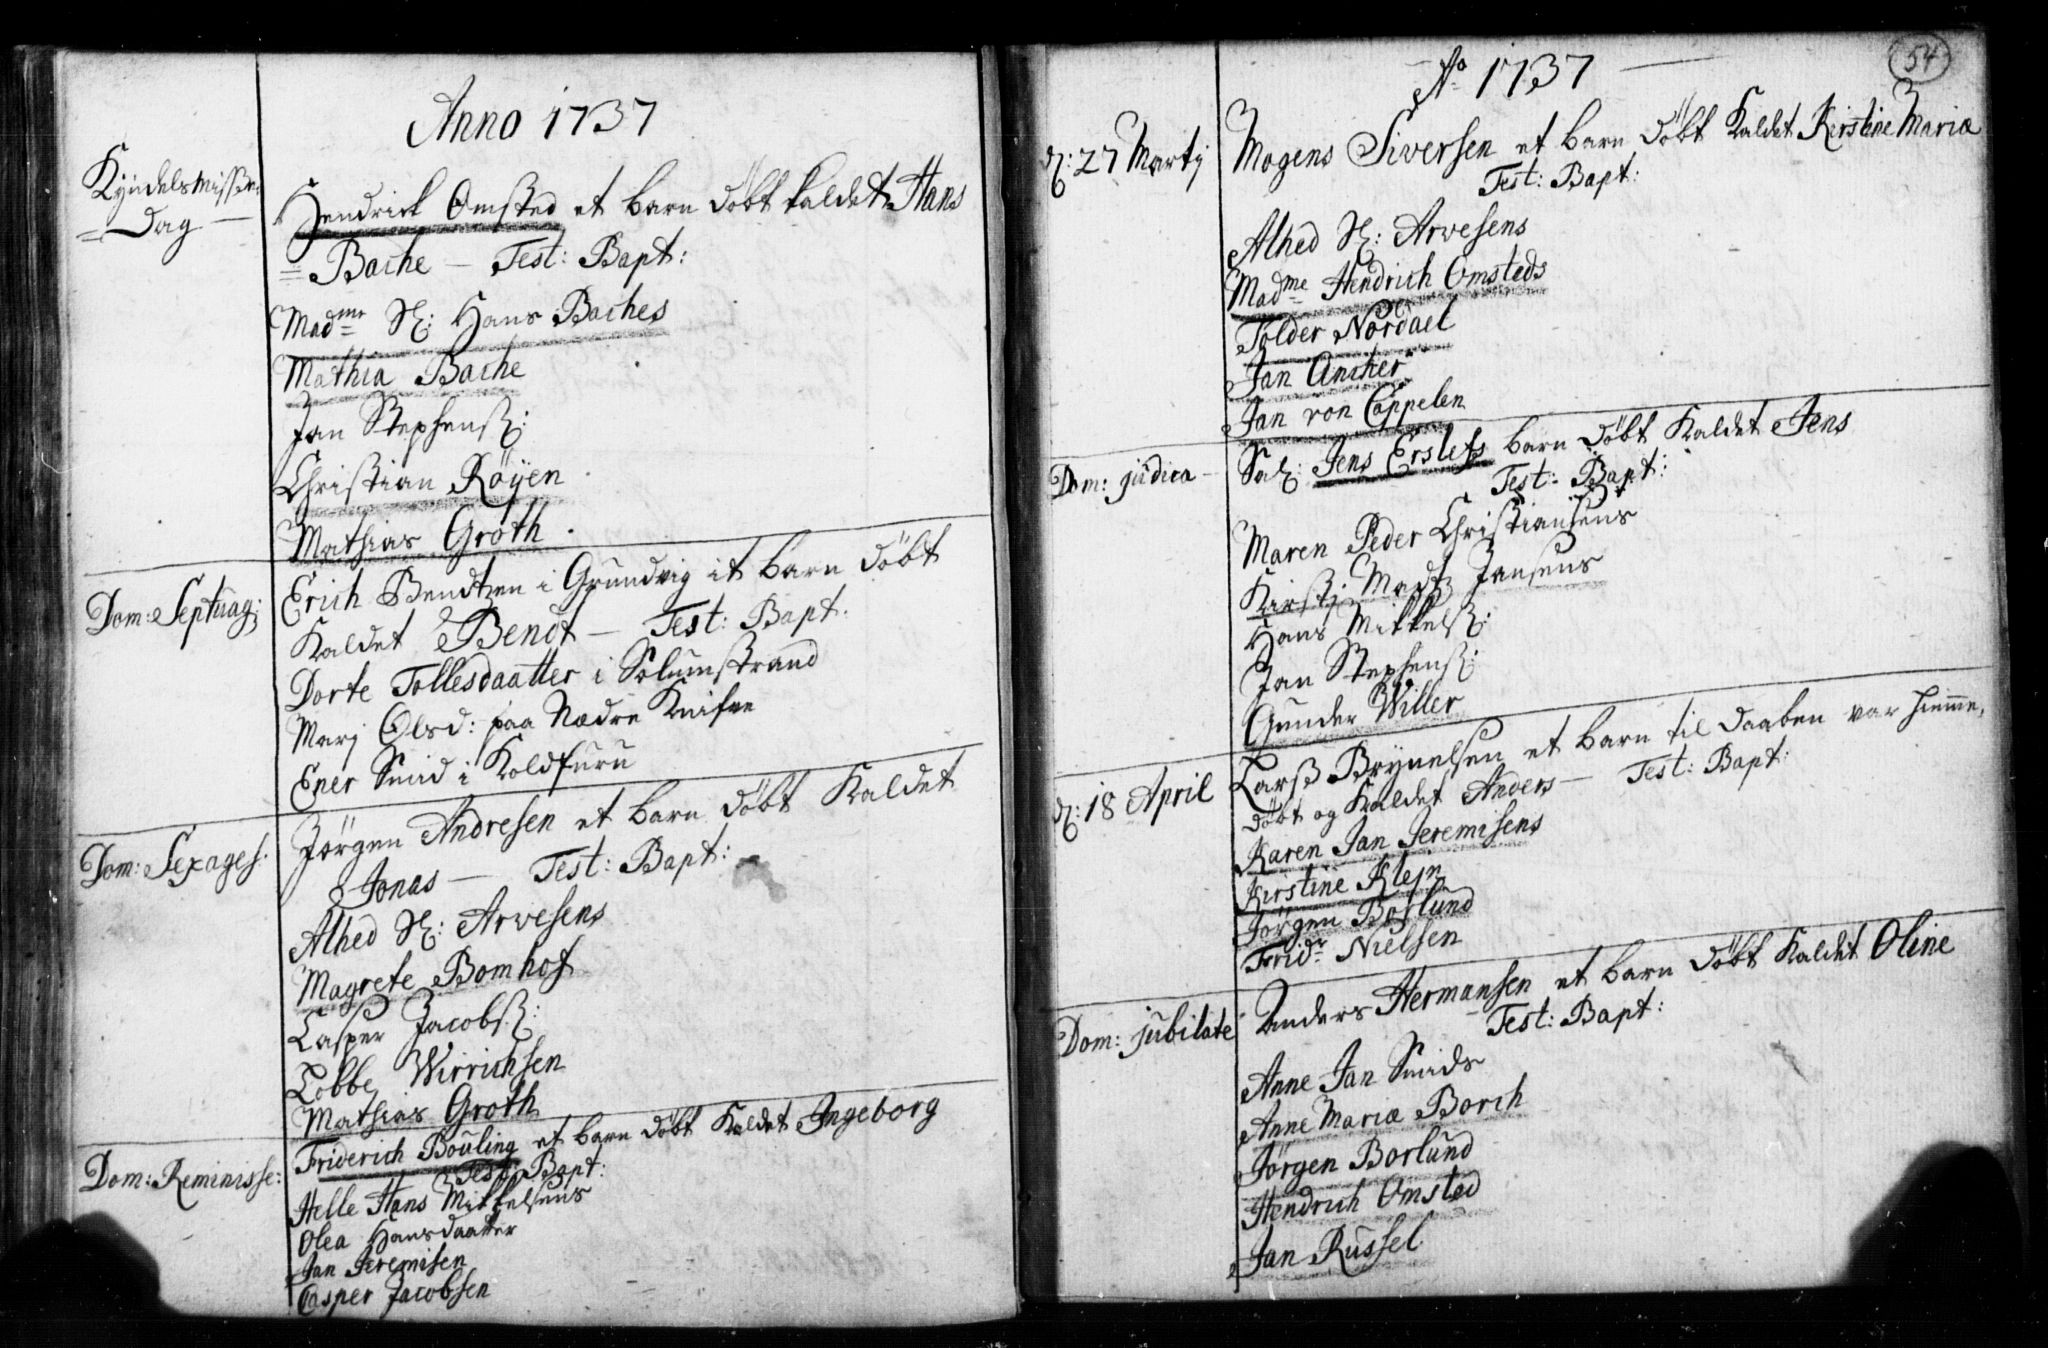 Anno 1737
Kyndelsmisse
= Dag —
Hendrick Omsted et barn döbt kaldet Hans
= Bache — Test: Bapt:
Madme Sl: Hans Baches
Mathia Bache
Jan Stephens:
Christian Röyen
Mathias Groth.
Dom: Septuag:
Erich Bendtzen i Grundvig it barn döbt
Kaldet Bendt — Test: Bapt:
Dorte Tollesdaatter i Solumstrand
Marj Olsd: paa Nædre Knifve
Ener Smid i Koldfuru
Dom: Sexages:
Jörgen Andresen et barn döbt Kaldet
Jonas — Test: Bapt:
Alhed Sl: Arvesens
Magrete Bomhof
Casper Jacobs:
Lobbe Wirrichsen
Mathias Groth
Dom: Reminisse:
Friderich Bouling et barn döbt Kaldet Ingeborg
Test: Bapt:
Helle Hans Mikkelsens
Olea Hansdaatter
Jan Jeremisen
Casper Jacobsen
54
Ao 1737
d: 27 Martj
Mogens Siversen et barn döbt Kaldet Kirstine Maria
Test: Bapt:
Alhed Sl: Arvesens
Madme Hendrich Omsteds
Tolder Nordael
Jan Ancher
Jan von Cappelen
Dom: judica —
Sal: Jens Ersles barn döbt Kaldet Jens
Test: Bapt:
Maren Peder Christiansens
Kirstj Madz Jansens
Hans Mikkels:
Jan Stephens:
Gunder Willer
d: 18 April
Lars Brynelsen et barn til Daaben var hiemme,
döbt og Kaldet Anders — Test: Bapt:
Karen Jan Jeremisens
Kirstine Klejn
Jörgen Borlund
Fridr Nielsen
Dom: jubilate
Anders Hermansen et barn döbt Kaldet Oline
Test: Bapt:
Anne Jan Smids
Anne Maria Borch
Jörgen Borlund
Hendrich Omsted
Jan Russel